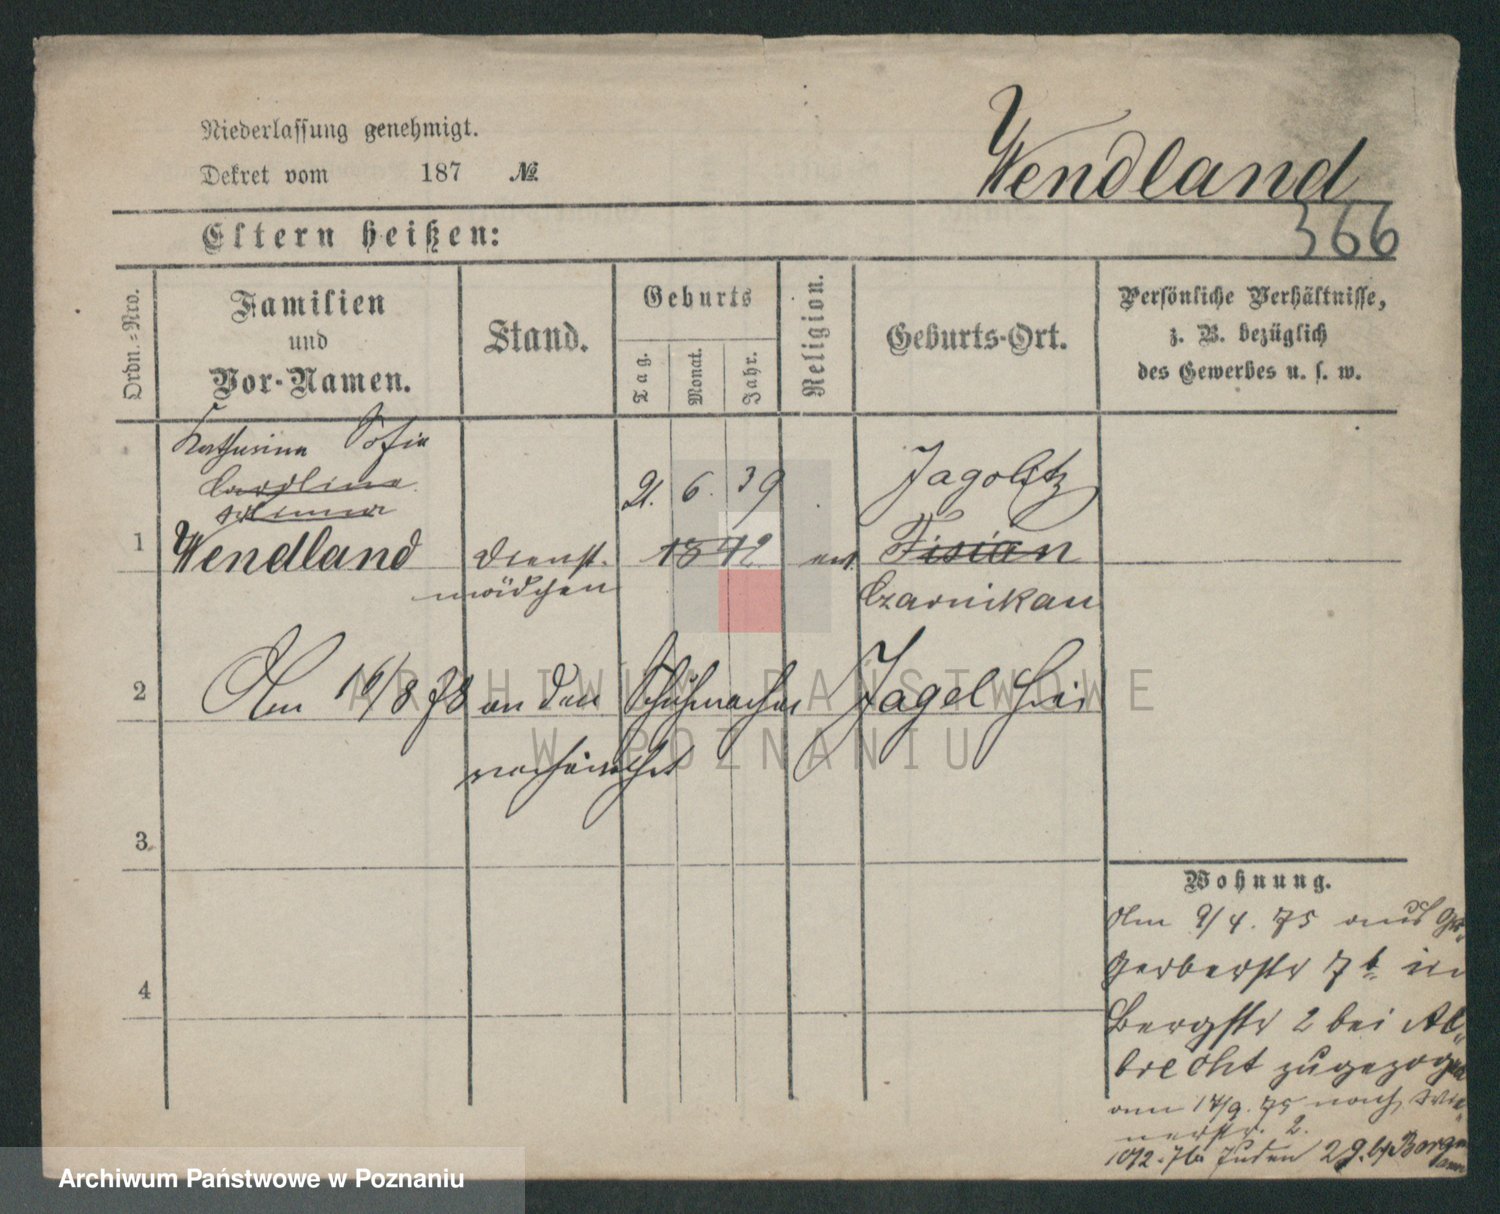 Niederlassung genehmigt.
Dekret vom 187 №
Wendland
366
Eltern heißen:
Ordn.-Nro.
Familien
und
Vor-Namen.
Stand.
Geburts
Tag.
Monat.
Jahr.
Religion.
Geburts-Ort.
Persönliche Verhältnisse,
z. B. bezüglich
des Gewerbes u. s. w.
Katharina Sofia
Carolina
21. 6. 39
Jagolitz
1 Wendland Dienst- 1842 ev. Fisian
mädchen
Czarnikau
2 Am 16/8 78 an den Schuhmacher Jagel hier
verheirathet
3
4
Wohnung.
Am 9/4. 75 aus Gr.
Gerberstr 7b in
Bergstr 2 bei Al-
brecht zugezogen
am 17/9. 75 nach
nerstr. 2.
10/2. 76 Juden 29. b/ Borgm
ARCHIWUM PAŃSTWOWE
W POZNANIU
Archiwum Państwowe w Poznaniu